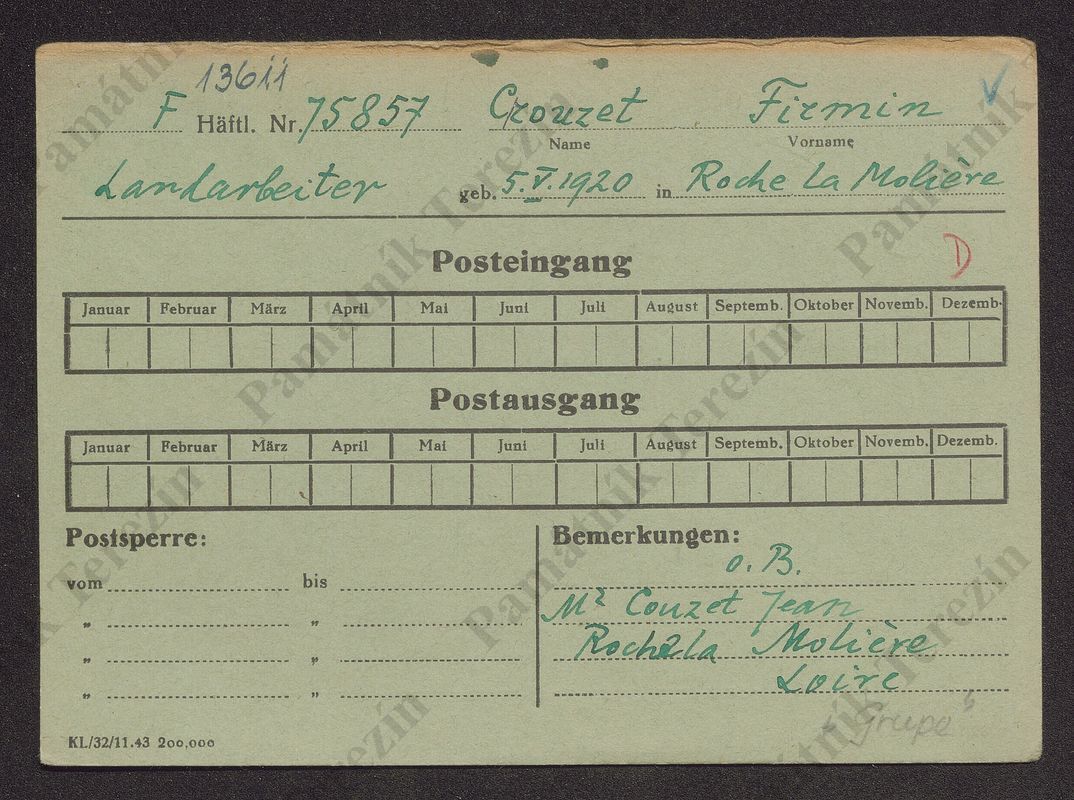 13611
F Häftl. Nr. 75857 Crouzet Firmin
Name Vorname
Landarbeiter geb. 5.V.1920 in Roche la Molière
Posteingang D
Januar Februar März April Mai Juni Juli August Septemb. Oktober Novemb. Dezemb.
Postausgang
Januar Februar März April Mai Juni Juli August Septemb. Oktober Novemb. Dezemb.
Postsperre: Bemerkungen:
o. B.
vom bis
Mr Couzet Jean
" "
Roche la Molière
" "
Loire
" "
"Grupa"
KL/32/11.43 200,000
Památník Terezín